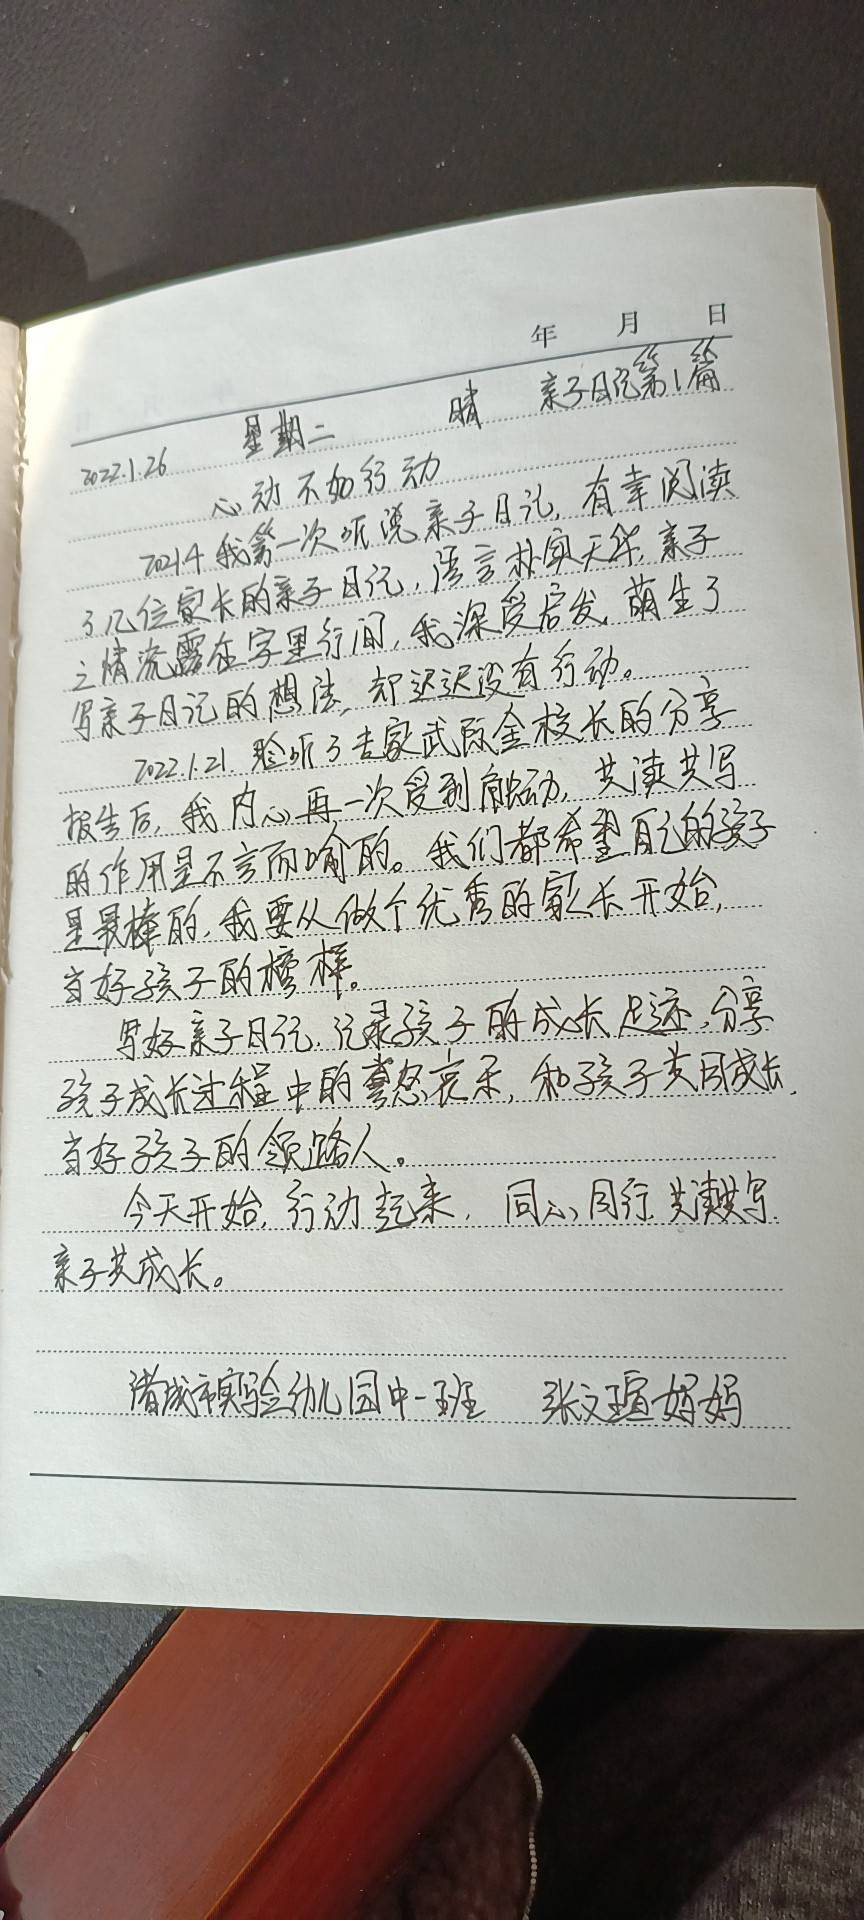 年 月 日
2022.1.26 星期二 晴 亲子日记第1篇
心动不如行动
2021.4 我第一次听说亲子日记,有幸阅读
了几位家长的亲子日记,语言朴实无华,亲子
之情流露在字里行间,我深受启发,萌生了
写亲子日记的想法,却迟迟没有行动。
2022.1.21.聆听了专家武际金校长的分享
报告后,我内心再一次受到触动,共读共写
的作用是不言而喻的。我们都希望自己的孩子
是最棒的,我要从做个优秀的家长开始,
当好孩子的榜样。
写好亲子日记,记录孩子的成长足迹,分享
孩子成长过程中的喜怒哀乐,和孩子共同成长,
当好孩子的领路人。
今天开始,行动起来,同心同行,共读共写
亲子共成长。
诸城市实验幼儿园中一班 张文瑄妈妈